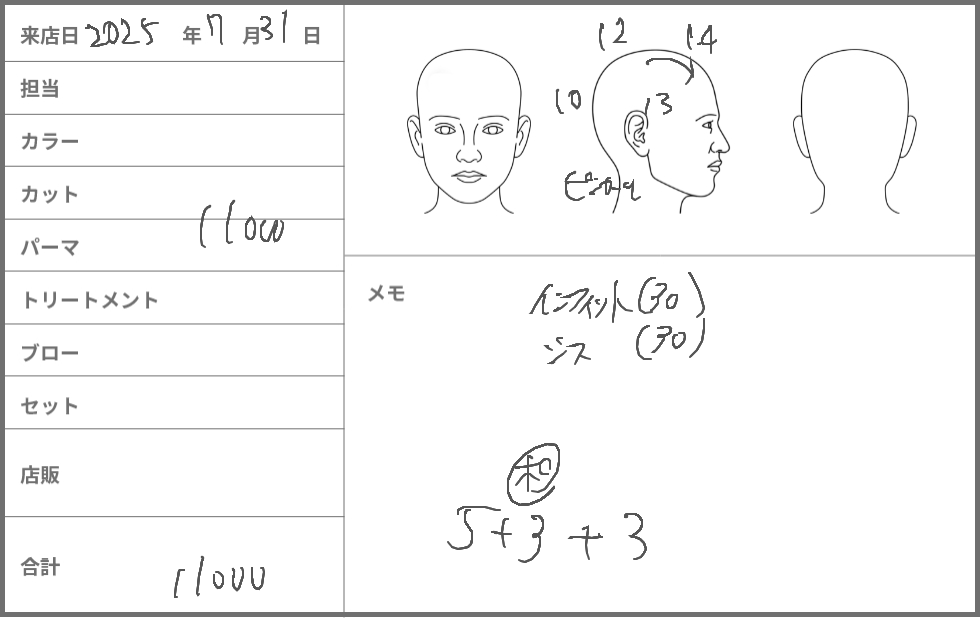 来店日 2025 年 7 月 31 日
担当
カラー
カット
11000
パーマ
トリートメント
ブロー
セット
店販
合計 11000
12 14
10 13
メモ
インフィット(30)
シス (30)
5+3+3